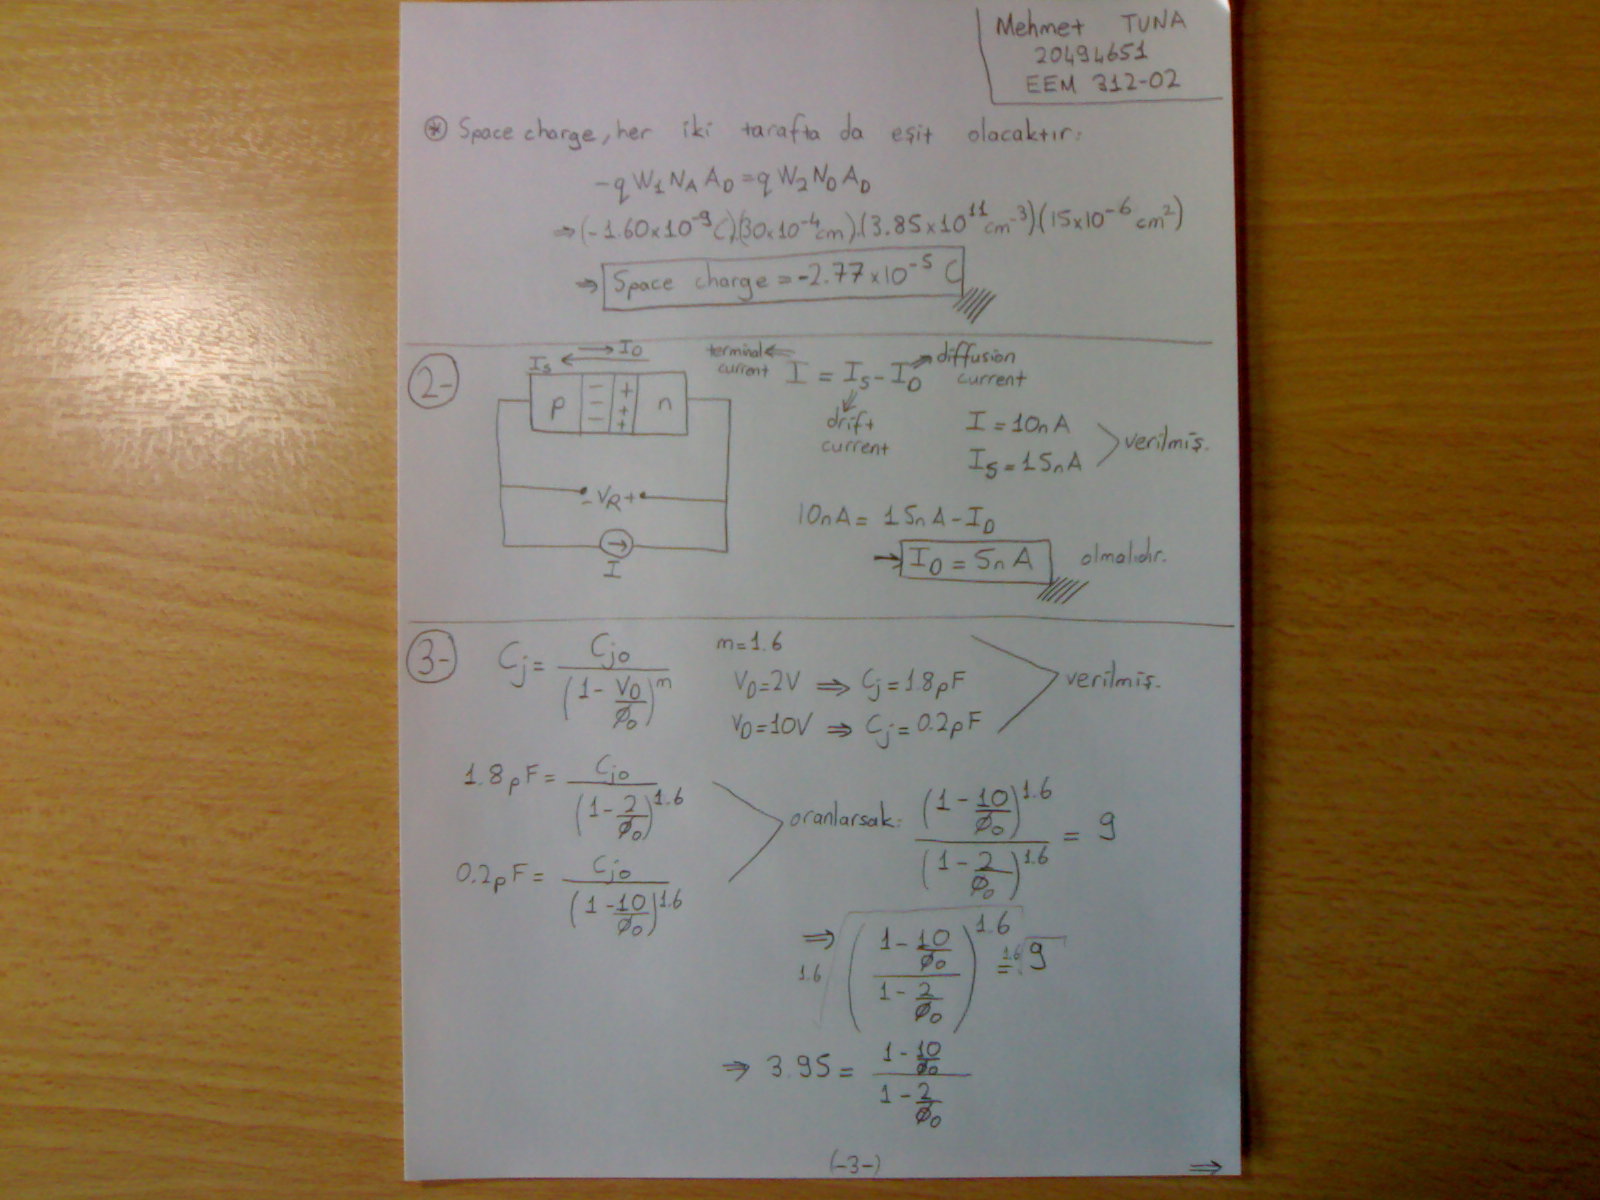 Mehmet TUNA
20494651
EEM 312-02
* Space charge, her iki tarafta da eşit olacaktır:
-qW₁N_A A_D = qW₂N_D A_D
⇒ (-1.60x10⁻⁹C).(30x10⁻⁴cm).(3.85x10¹¹cm⁻³)(15x10⁻⁶cm²)
⇒ Space charge = -2.77x10⁻⁵ C
2-
I_S ← → I_D
p - - - + + + n
- V_R +
I
terminal current ⇐ I = I_S - I_D ⇒ diffusion current
drift current
I = 10nA
I_S = 15nA
verilmiş.
10nA = 15nA - I_D
→ I_D = 5nA olmalıdır.
3-
C_j = C_jo / (1 - V_D/Ø₀)^m
m=1.6
V_D=2V ⇒ C_j=1.8pF
V_D=10V ⇒ C_j=0.2pF
verilmiş.
1.8pF = C_jo / (1 - 2/Ø₀)^1.6
0.2pF = C_jo / (1 - 10/Ø₀)^1.6
oranlarsak: (1 - 10/Ø₀)^1.6 / (1 - 2/Ø₀)^1.6 = 9
⇒ 1.6√((1 - 10/Ø₀) / (1 - 2/Ø₀))^1.6 = 1.6√9
⇒ 3.95 = (1 - 10/Ø₀) / (1 - 2/Ø₀)
(-3-)
⇒